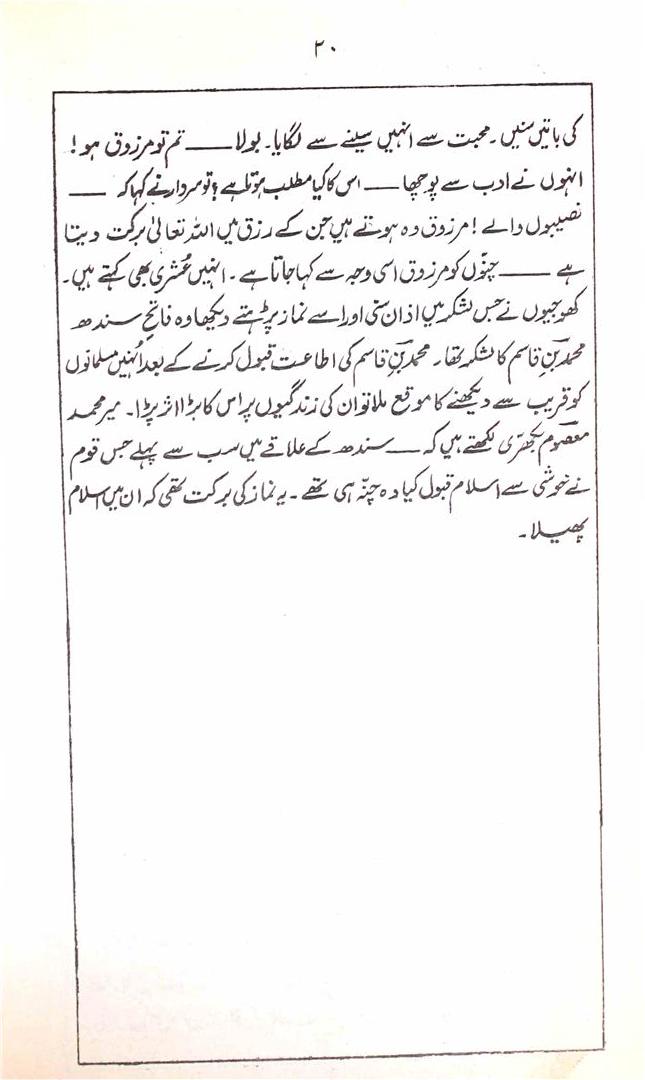 ۲۰
کی باتیں سنیں۔ محبت سے انہیں سینے سے لگایا۔ بولا ــــ تم تو مرزوق ہو!
انہوں نے ادب سے پوچھا ــــ اس کا کیا مطلب ہوتا ہے؟ تو سردار نے کہا کہ ــــ
نصیبوں والے! مرزوق وہ ہوتے ہیں جن کے رزق میں اللہ تعالیٰ برکت دیتا
ہے ــــ چنّوں کو مرزوق اسی وجہ سے کہا جاتا ہے۔ انہیں عُشری بھی کہتے ہیں۔
کھوجیوں نے جس لشکر میں اذان سنی اور اسے نماز پڑھتے دیکھا وہ فاتحِ سندھ
محمد بن قاسم کا لشکر تھا۔ محمد بن قاسم کی اطاعت قبول کرنے کے بعد اُنہیں مسلمانوں
کو قریب سے دیکھنے کا موقع ملا تو ان کی زندگیوں پر اس کا بڑا اثر پڑا۔ میر محمد
معصوم بکھری لکھتے ہیں کہ ــــ سندھ کے علاقے میں سب سے پہلے جس قوم
نے خوشی سے اسلام قبول کیا وہ چنّہ ہی تھے۔ یہ نماز کی برکت تھی کہ ان میں اسلام
پھیلا۔